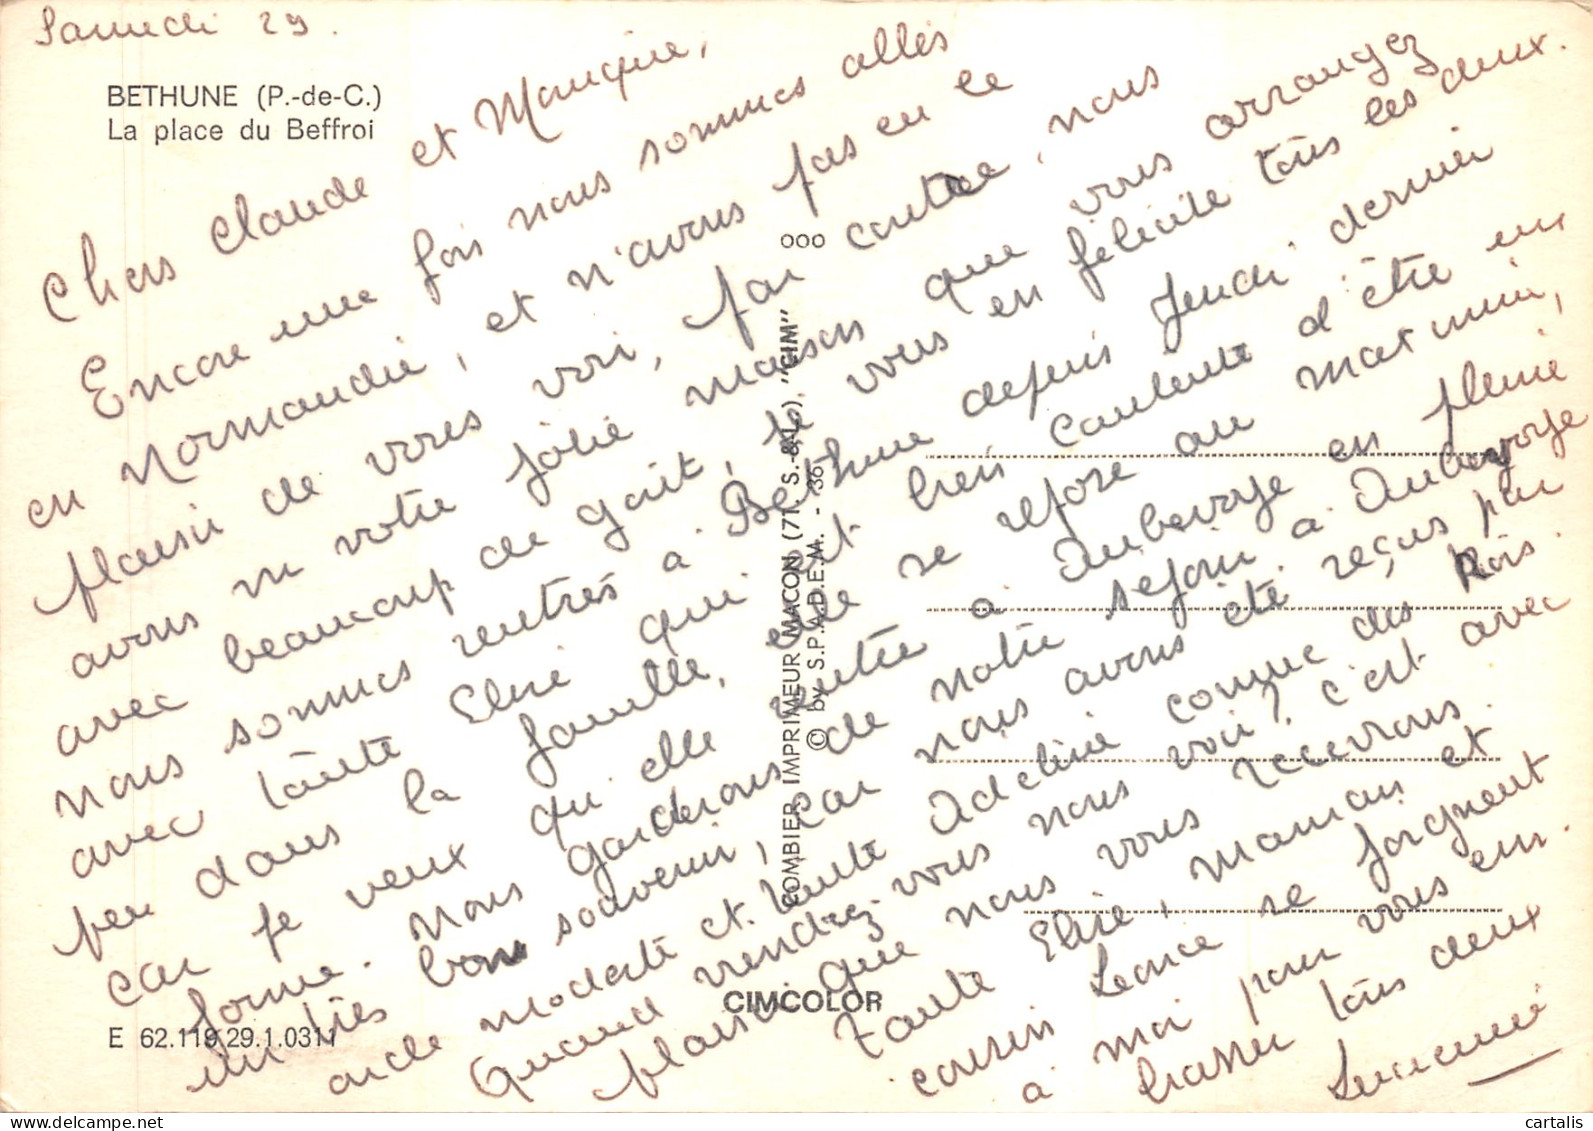 Samedi 29.
BETHUNE (P.-de-C.)
La place du Beffroi
Chers Claude et Monique,
Encore une fois nous sommes allés
en Normandie, et n'avons pas eu le
plaisir de vous voir, par contre, nous
avons vu votre jolie maison que vous arrangez
avec beaucoup de goût, je vous en félicite tous les deux.
nous sommes rentrés à Bethune depuis Jeudi dernier
avec tante Elise qui est bien contente d'être un
peu dans la famille, elle se repose au maximum,
car je veux qu'elle rentre à Aubevoye en pleine
forme. Nous garderons de notre séjour à Aubevoye
un très bon souvenir, car nous avons été reçus par
oncle modeste et tante Adeline comme des Rois.
Quand viendrez-vous nous voir? c'est avec
plaisir que nous vous recevrons.
Tante Elise, maman et
cousin Léonce se joignent
à moi pour vous em
brasser tous deux
COMBIER IMPRIMEUR MACON (71 S.-&-L.), "CIM"
© by S.P.A.D.E.M. - 36
000
CIMCOLOR
E 62.119.29.1.0311